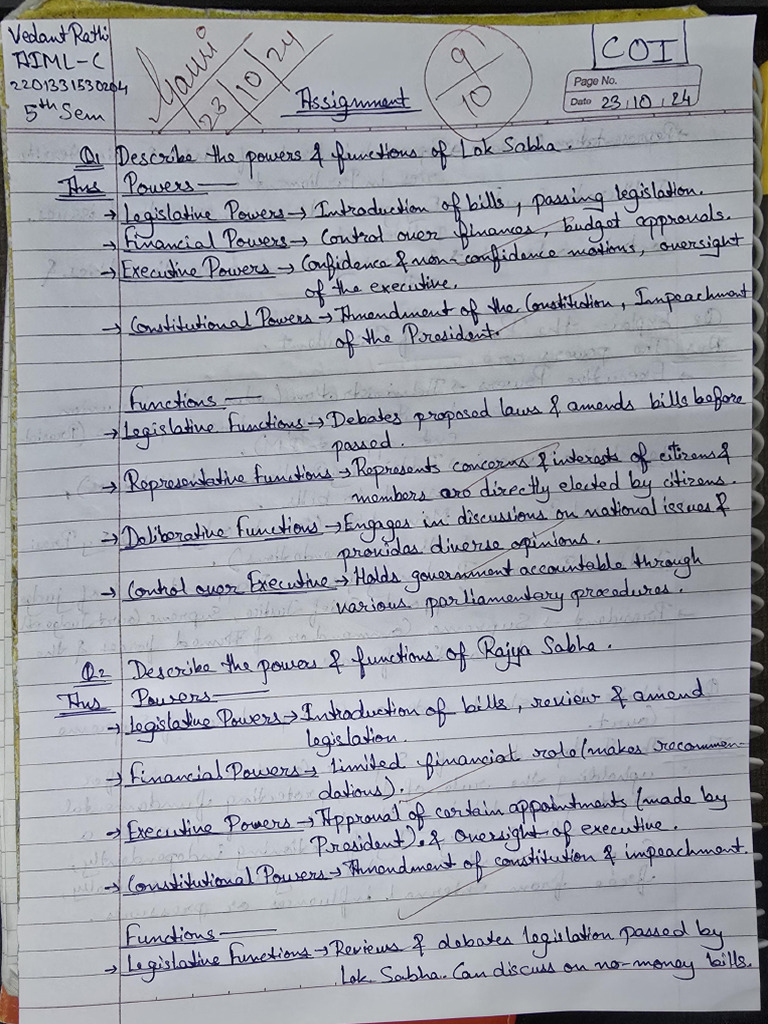 Vedant Rathi
AIML-C
2201331530204
5th Sem
23/10/24
9/10
COI
Page No.
Date 23/10/24
Assignment
Q1 Describe the powers & functions of Lok Sabha.
Ans Powers —
→ Legislative Powers → Introduction of bills, passing legislation.
→ Financial Powers → Control over finances, budget approvals.
→ Executive Powers → Confidence & non-confidence motions, oversight
of the executive.
→ Constitutional Powers → Amendment of the Constitution, Impeachment
of the President.
Functions —
→ Legislative Functions → Debates proposed laws & amends bills before
passed.
→ Representative Functions → Represents concerns & interests of citizens &
members are directly elected by citizens.
→ Deliberative Functions → Engages in discussions on national issues &
provides diverse opinions.
→ Control over Executive → Holds government accountable through
various parliamentary procedures.
Q2 Describe the powers & functions of Rajya Sabha.
Ans Powers —
→ Legislative Powers → Introduction of bills, review & amend
legislation.
→ Financial Powers → Limited financial role (makes recommen-
dations).
→ Executive Powers → Approval of certain appointments (made by
President). & oversight of executive.
→ Constitutional Powers → Amendment of constitution & impeachment.
Functions —
→ Legislative Functions → Reviews & debates legislation passed by
Lok Sabha. Can discuss on no-money bills.